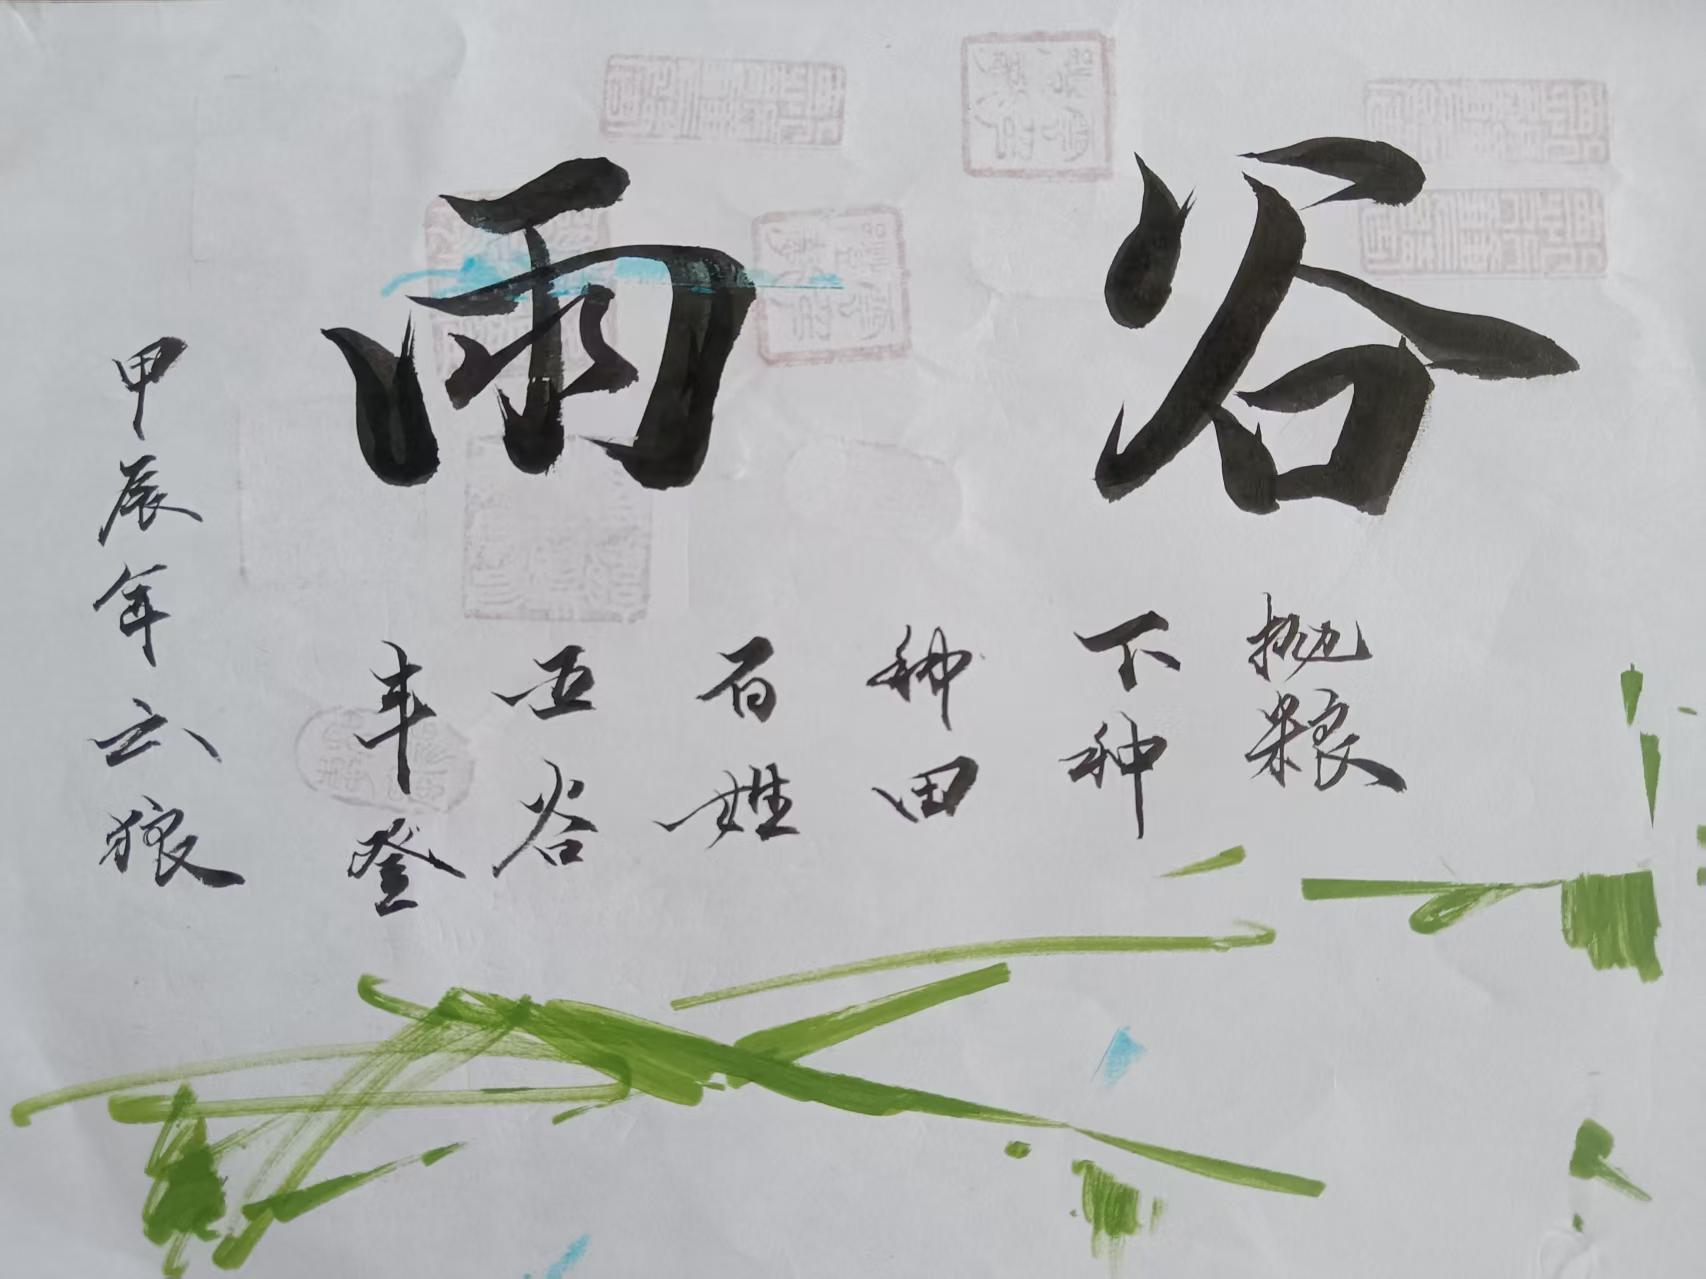 谷雨
抛粮
下种
种田
百姓
五谷
丰登
甲辰年云狼